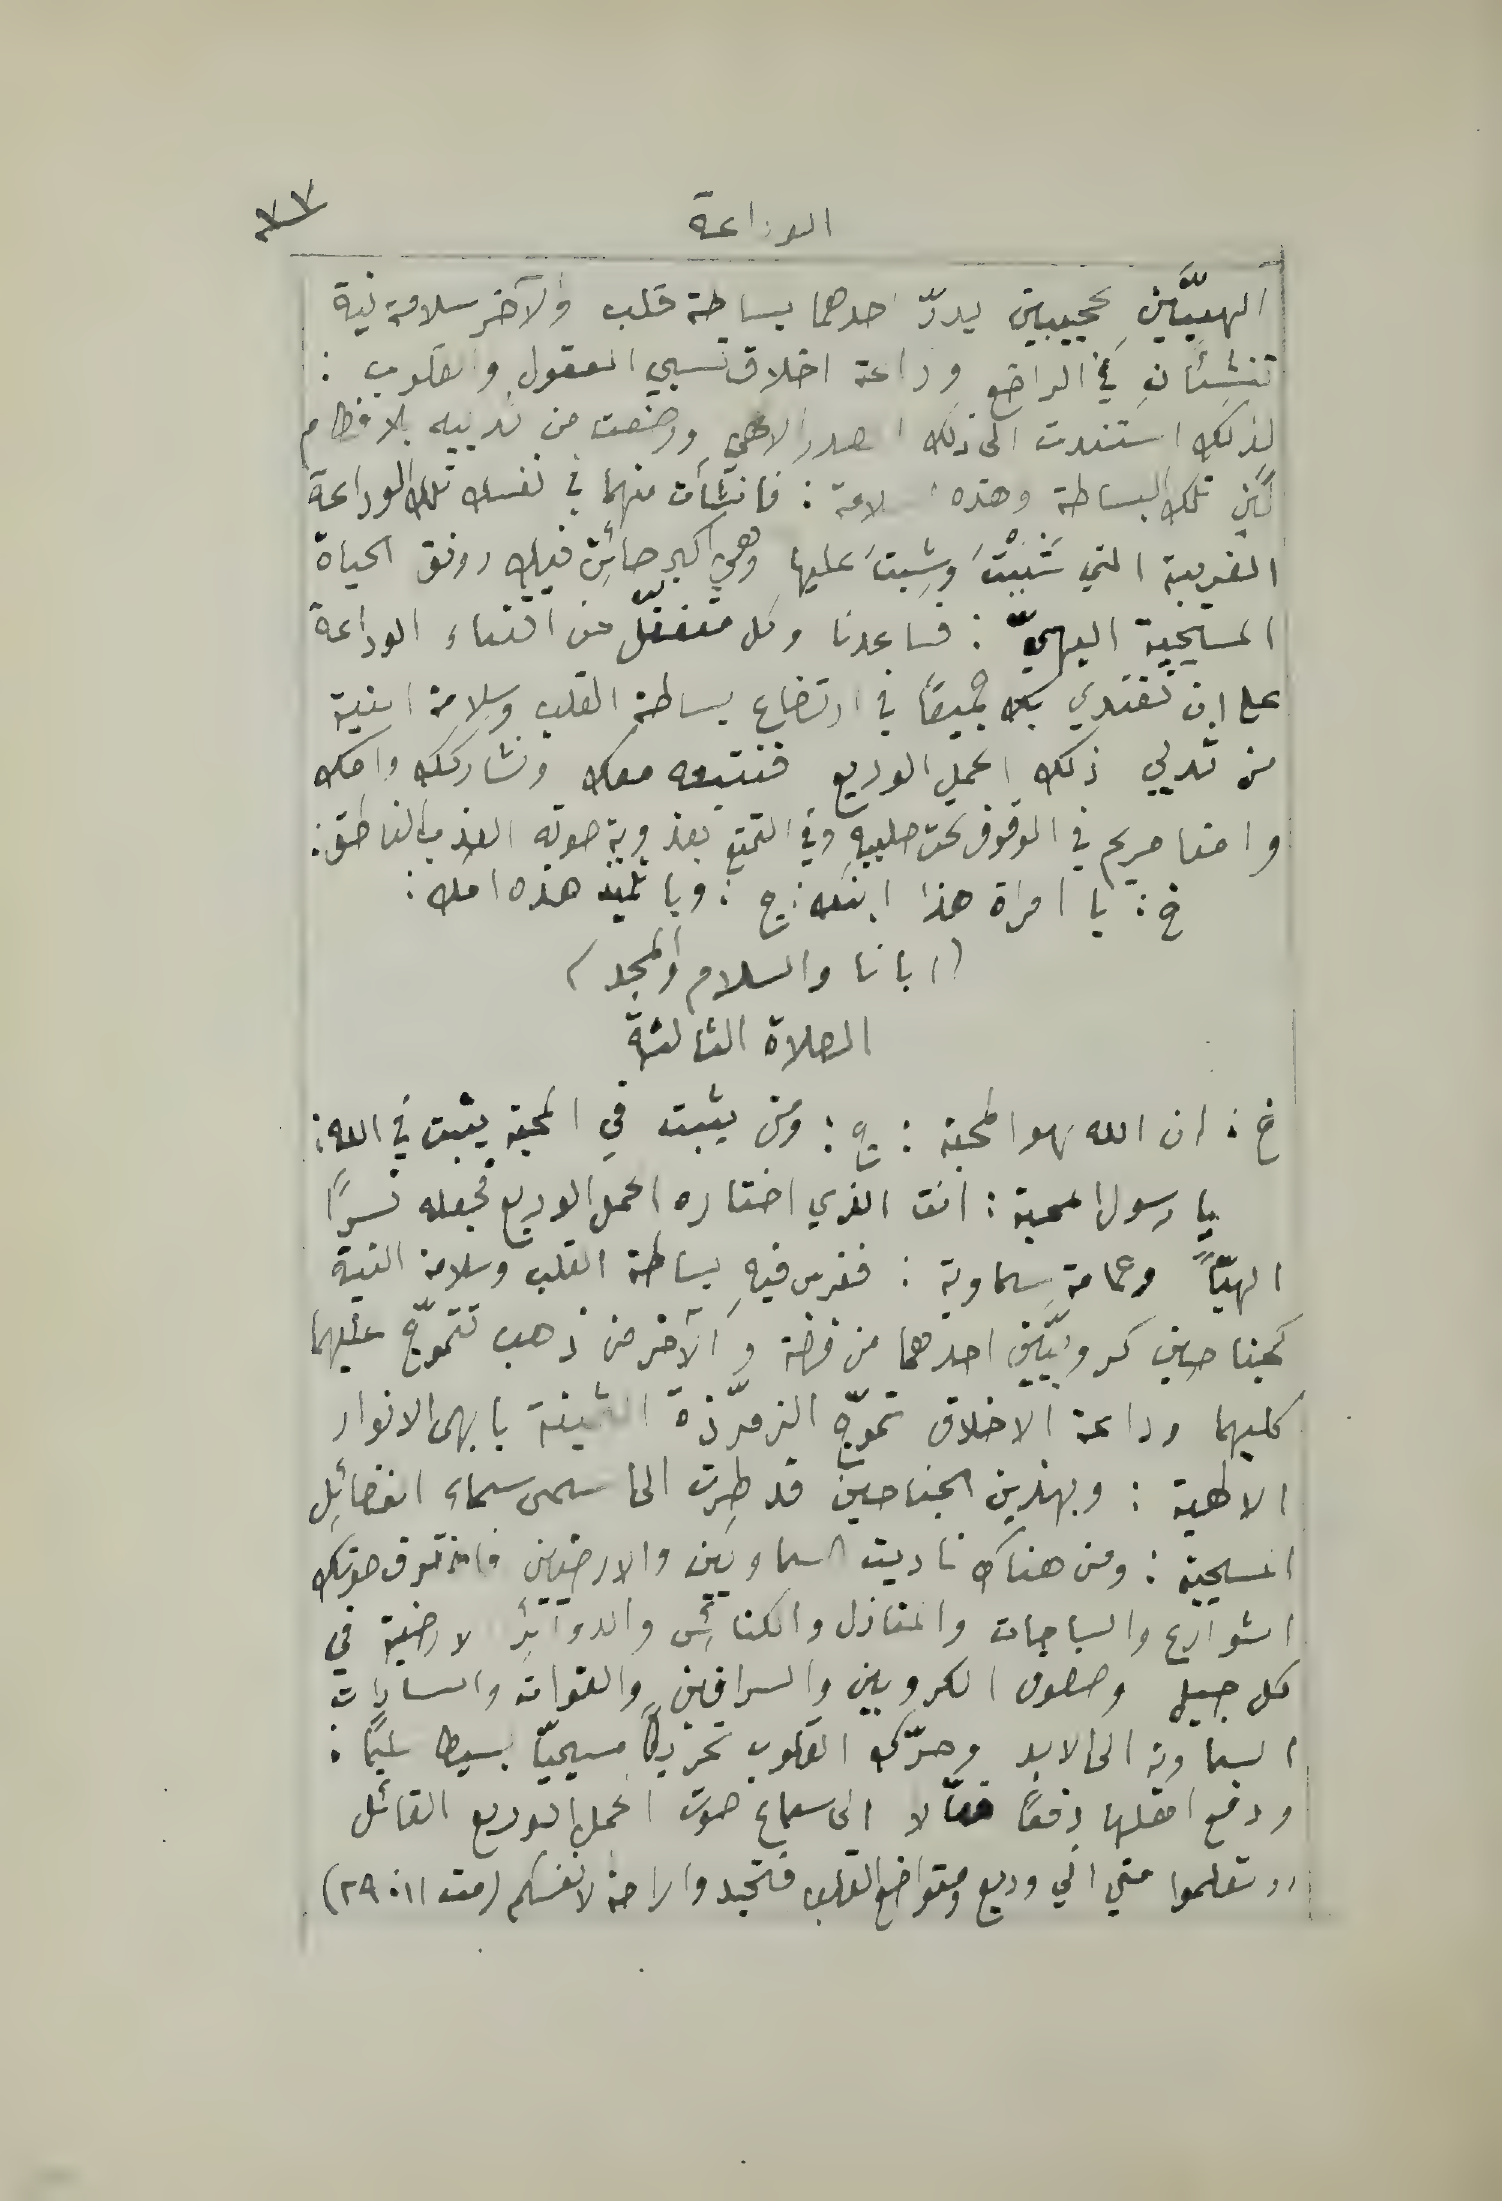 الوداعة ٧٧
الهيَّين عجيبين يدرّ احدهما بساطة قلب والآخر سلامة نية
تنشئان في الراضع وداعة اخلاق تسبي العقول والقلوب :
لذلك استندت الى ذلك الصدر الالهي ورضعت من ثدييه بلا فطام
لبن تلك البساطة وهذه السلامة : فانشأت منهما في نفسك تلك الوداعة
الغريبة التي شَبَبْتَ وشِبتَ عليها وهي اكبر صائن فيك رونق الحياة
المسيحية البهيّ : فساعدنا وكل متغفّل عن اقتناء الوداعة
على ان نقتدي بك جميعًا في ارتضاع بساطة القلب وسلامة النية
من ثديي ذلك الحمل الوديع فنتبعه معك ونشاركك وامك
وامنا مريم في الوقوف تحت صليبه وفي التمتع بعذوبة صوته العذب الناطق :
خ : يا امراة هذا ابنك : ج : ويا تلميذ هذه امك :
(ابانا والسلام والمجد)
الصلاة الثالثة
خ : ان الله هو المحبة : ج : ومن يثبت في المحبة يثبت في الله :
يا رسول المحبة : انت الذي اختاره الحمل الوديع فجعله نسرًا
الهيًّا وحمامة سماوية : فغرس فيه بساطة القلب وسلامة النية
كجناحين كروبيَّين احدهما من فضة والآخر من ذهب تتموّج عليهما
كليهما وداعة الاخلاق تموّج الزمرّذة الثمينة بابهى الانوار
الالهية : وبهذين الجناحين قد طِرت الى اسمى سماء الفضائل
المسيحية : ومن هناك ناديت السماويين والارضيين فاخترق صوتك
الشوارع والساحات والمنازل والكنائس والدوائر الارضية في
كل جيل وصفوف الكروبين والسرافين والقوات والسادات
السماوية الى الابد وحرّك القلوب تحريكًا مسيحيًّا بسيطا سليمًا :
ودفع اهلها دفعًا فعّالا الى سماع صوت الحمل الوديع القائل
" تعلموا مني اني وديع ومتواضع القلب فتجدوا راحة لانفسكم (مت ١١: ٢٩)